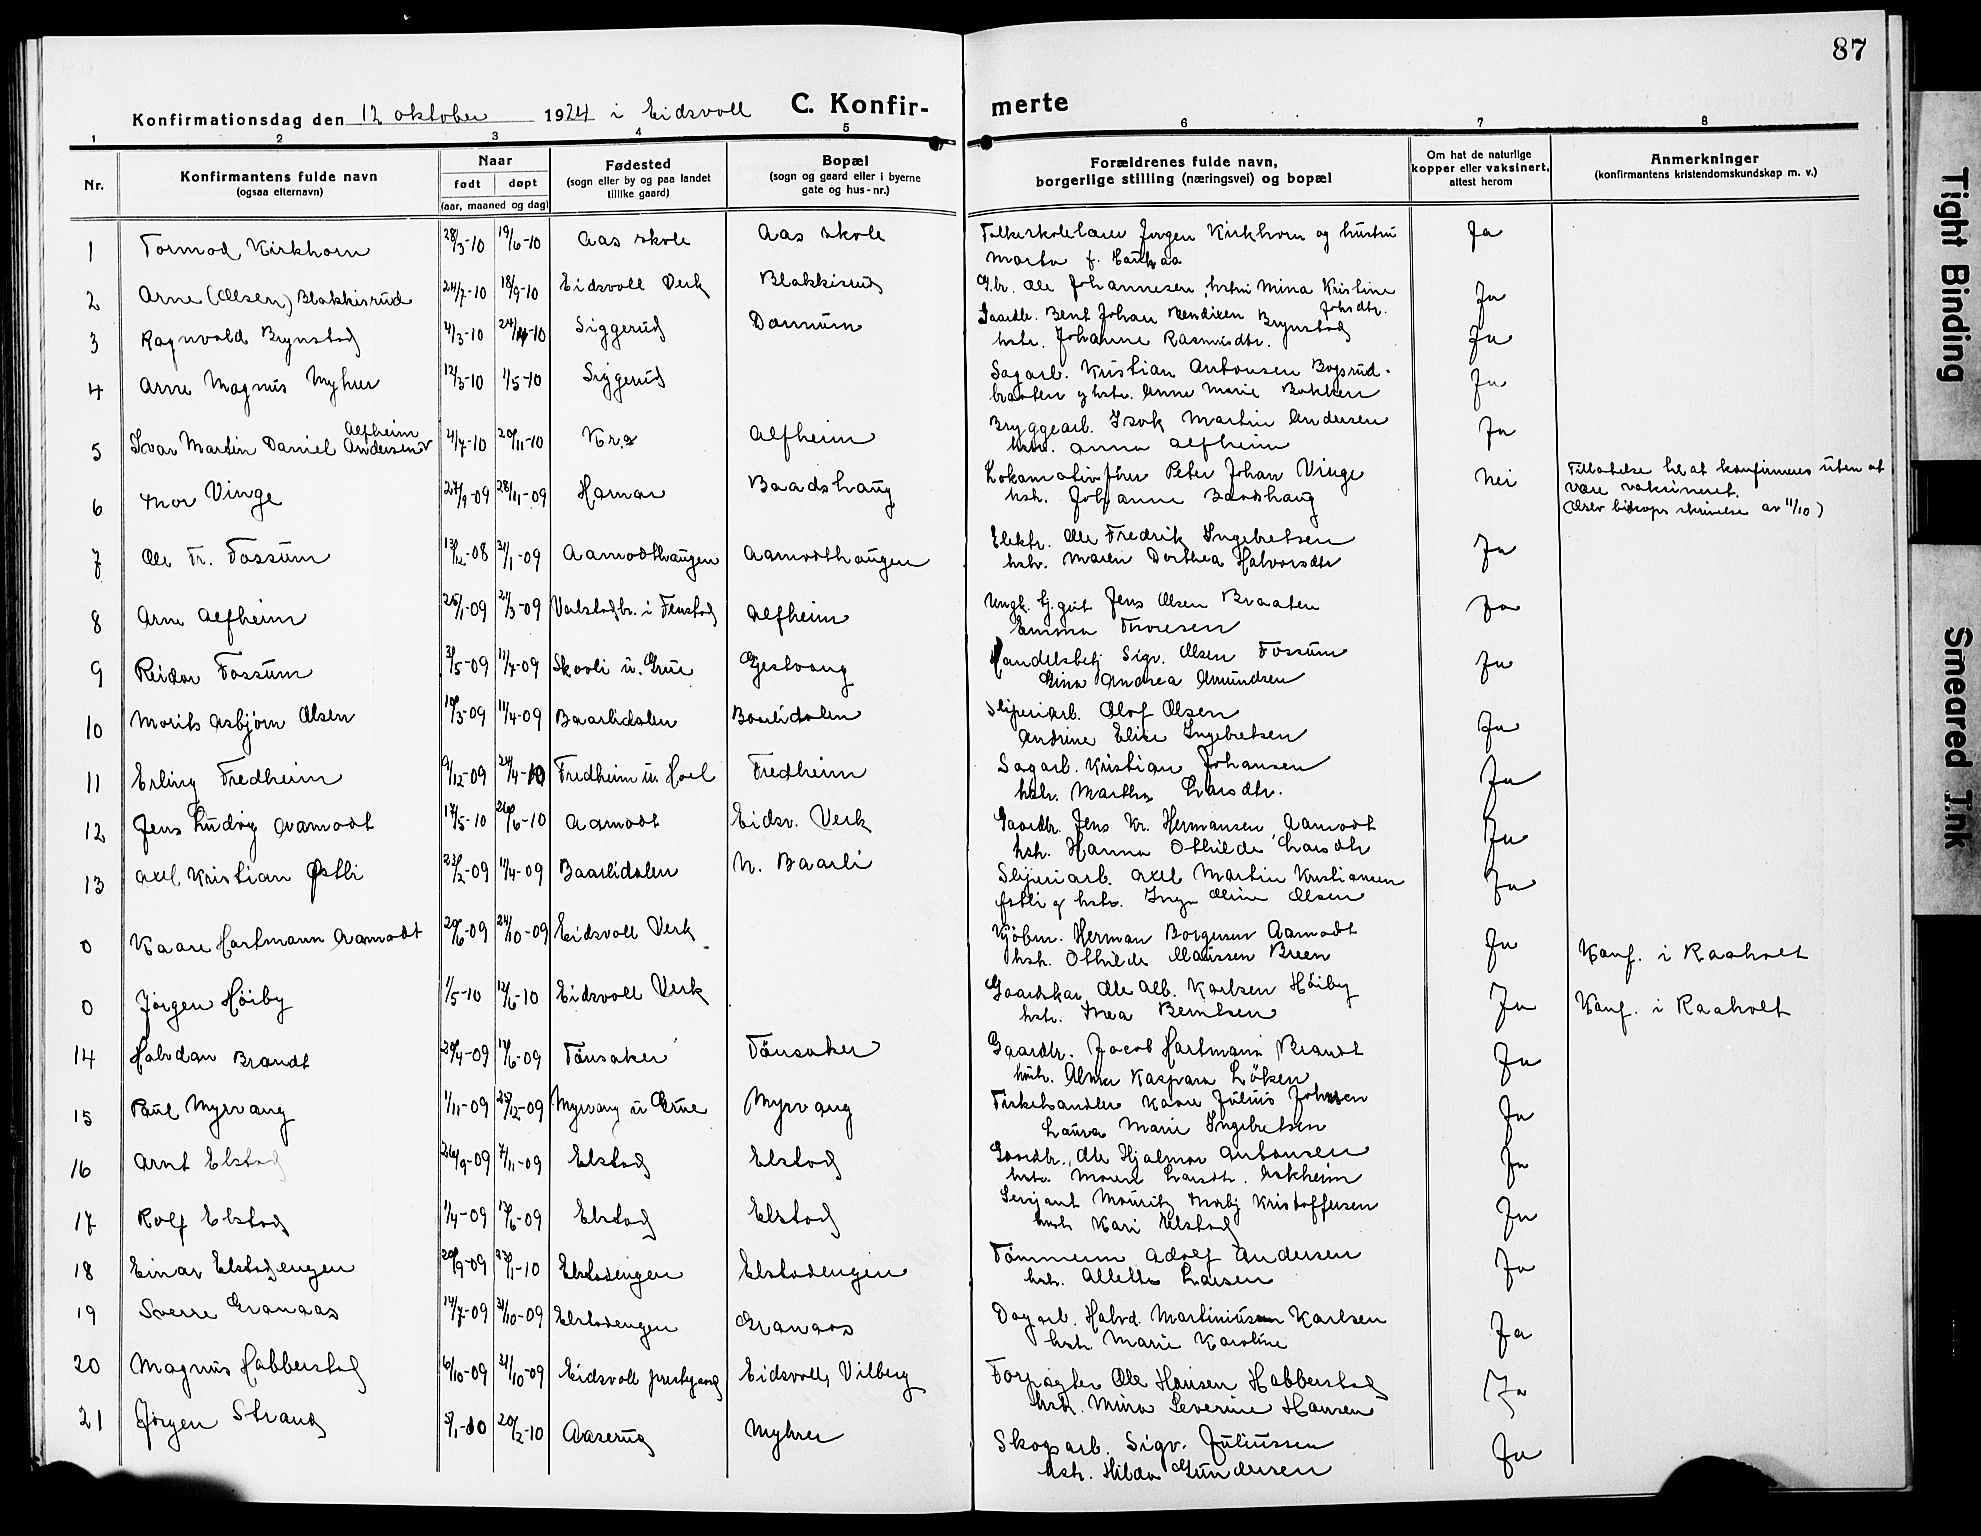 87
Konfirmationsdag den 12 oktober 1924 i Eidsvoll
C. Konfir-
merte
1 2 3 4 5 6 7 8
Nr.
Konfirmantens fulde navn
(ogsaa efternavn)
Naar
født døpt
(aar, maaned og dag)
Fødested
(sogn eller by og paa landet
tillike gaard)
Bopæl
(sogn og gaard eller i byerne
gate og hus-nr.)
Forældrenes fulde navn,
borgerlige stilling (næringsvei) og bopæl
Om hat de naturlige
kopper eller vaksinert,
attest herom
Anmerkninger
(konfirmantens kristendomskundskap m. v.)
1 Tormod Kirkhorn 28/3-10 19/6-10 Aas skole Aas skole Folkeskolelærer Jørgen Kirkhorn og hustru Ja
Marta f.
2 Arne (Olsen) Blakkisrud 24/7-10 18/9-10 Eidsvoll Verk Blakkisrud G.br. Ole Johannesen, hstru Mina Kristine Ja
Johsdtr.
3 Ragnvald Brynstad 4/3-10 24/4-10 Siggerud Dønnum Gaardbr. Bent Johan Bendixen Brynstad
hstr. Johanne Rasmusdtr. Ja
4 Arne Magnus Myhrer 12/3-10 1/5-10 Siggerud Sagarb. Kristian Antonsen Bogsrud-
braaten og hstr. Anne Marie Bakken Ja
5 Ivar Martin Daniel Alfheim Andersen 4/7-10 20/11-10 Kr.a Alfheim Bryggearb. Isak Martin Andersen Ja
hstr. Anna Alfheim
6 Thor Vinge 27/9-09 28/11-09 Hamar Baadshaug Lokomotivfører Peter Johan Vinge Nei Tillatelse til at konfirmeres uten at
hstr. Johanne Baadshaug være vaksineret.
(Oslo bisops skrivelse av 11/10)
7 Ole Fr. Fossum 13/12-08 31/1-09 Aamodthaugen Aamodthaugen Elektr. Ole Fredrik Ingebretsen Ja
hstr. Maren Dorthea Halvorsdtr
8 Arne Alfheim 25/1-09 21/3-09 Valstadbr. i Fenstad Alfheim Ungk. Gj.gut Jens Olsen Braaten Ja
Emma Thoresen
9 Reidar Fossum 3/5-09 11/7-09 Skovli u. Grue Gjestvang Handelsbetj Sigv. Olsen Fossum Ja
Gina Andrea Amundsen
10 Morits Asbjørn Olsen 19/3-09 11/4-09 Baarlidalen Baarlidalen Sliperiarb. Olof Olsen Ja
Andrine Elise Ingebretsen
11 Erling Fredheim 9/12-09 24/4-10 Fredheim u. Hoel Fredheim Sagarb. Kristian Johansen Ja
hstr. Martha Larsdtr.
12 Jens Ludvig Aamodt 17/5-10 26/6-10 Aamodt Eidsv. Verk Gaardbr. Jens Kr. Hermansen Aamodt Ja
hstr. Hanna Othilde Larsdtr
13 Axel Kristian Østli 23/2-09 11/4-09 Baarlidalen N. Baarli Sliperiarb. Axel Martin Kristiansen Ja
Østli og hstr. Inga Oline Olsen
0 Kaare Hartmann Aamodt 20/6-09 24/10-09 Eidsvoll Verk Kjøbm. Herman Borgersen Aamodt Ja Konf. i Raaholt
hstr. Othilde Claussen Breen
0 Jørgen Høiby 1/5-10 12/6-10 Eidsvoll Verk Gaardskar Ole Alb. Karlsen Høiby Ja Konf. i Raaholt
hstr. Thea Berntsen
14 Halvdan Brandt 29/4-09 13/6-09 Tønsaker Tønsaker Gaardbr. Jacob Hartmann Brandt Ja
hstr. Alma Kaspara Løken
15 Paul Myrvang 1/11-09 25/12-09 Myrvang u Grue Myrvang Fiskehandler Kaare Julius Johnsen Ja
Laura Marie Ingebretsen
16 Arnt Elstad 26/9-09 7/11-09 Elstad Elstad Gaardbr. Ole Hjalmar Antonsen Ja
hstr. Maren Larsdt. Askheim
17 Rolf Elstad 1/4-09 13/6-09 Elstad Elstad Sersjant Mauritz Thorbj Kristoffersen Ja
hstr Kari Elstad
18 Einar Elstadengen 20/9-09 23/1-10 Elstadengen Elstadengen Tømmerm Adolf Andersen Ja
hstr. Alette Larsen
19 Sverre Granaas 14/7-09 31/10-09 Elstadengen Granaas Dagarb. Halvd. Martiniusen Karlsen Ja
hstr. Marie Karoline
20 Magnus Habberstad 6/10-09 31/10-09 Eidsvoll prestegaard Eidsvoll, Vilberg Forpagter Ole Hansen Habberstad Ja
hstr. Mina Severine Hansen
21 Jørgen Strand 5/1-10 20/2-10 Aaserud Myhrer Skogsarb. Sigv. Juliussen Ja
hstr. Hilda Gundersen
Tight Binding
Smeared Ink